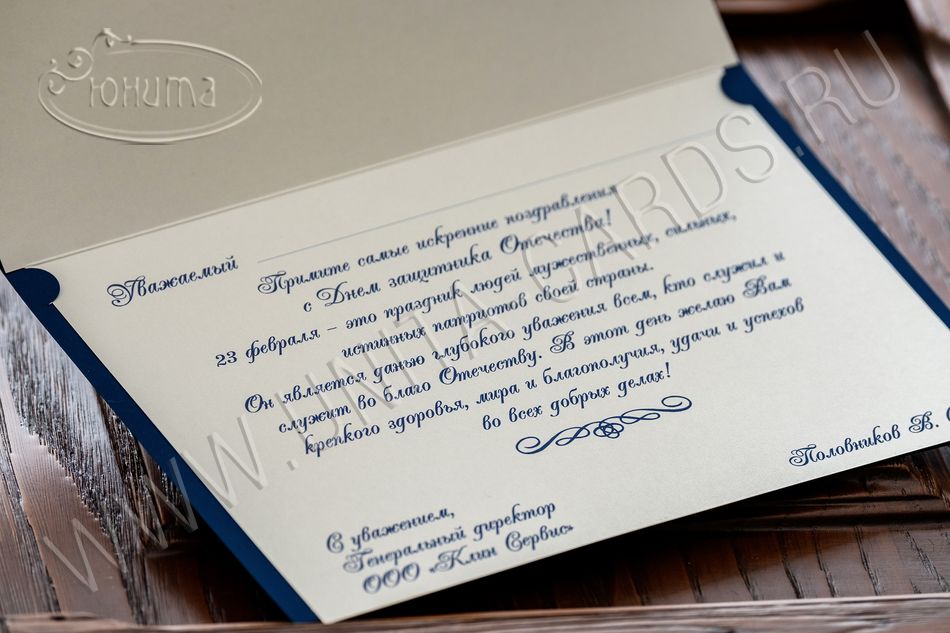 Юнита
WWW.UNITA-CARDS.RU
Уважаемый
Примите самые искренние поздравления
с Днем защитника Отечества!
23 февраля – это праздник людей мужественных, сильных,
истинных патриотов своей страны.
Он является данью глубокого уважения всем, кто служил и
служит во благо Отечеству. В этот день желаю Вам
крепкого здоровья, мира и благополучия, удачи и успехов
во всех добрых делах!
С уважением,
Генеральный директор
ООО «Клин Сервис»
Половников В.